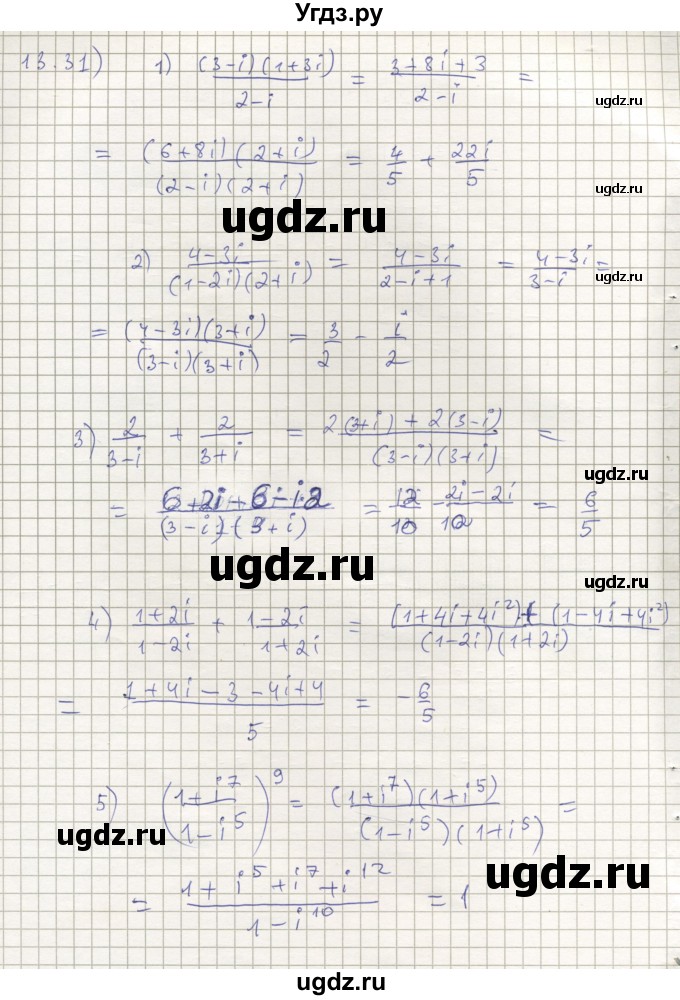 Угдз.ру
13.31) 1) (3-i)(1+3i)/2-i = 3+8i+3/2-i =
ugdz.ru
= (6+8i)(2+i)/(2-i)(2+i) = 4/5 + 22i/5
ugdz.ru
ugdz.ru
2) 4-3i/(1-2i)(2+i) = 4-3i/2-i+1 = 4-3i/3-i =
ugdz.ru
= (4-3i)(3+i)/(3-i)(3+i) = 3/2 - i/2
3) 2/3-i + 2/3+i = 2(3+i)+2(3-i)/(3-i)(3+i) =
ugdz.ru
= 6+2i+6-i2/(3-i)(3+i) = 12/10 - 2i-2i/10 = 6/5
ugdz.ru
ugdz.ru
4) 1+2i/1-2i + 1-2i/1+2i = (1+4i+4i²)+(1-4i+4i²)/(1-2i)(1+2i)
= 1+4i-3-4i+4/5 = -6/5
ugdz.ru
5) (1+i⁷/1-i⁵)⁹ = (1+i⁷)(1+i⁵)/(1-i⁵)(1+i⁵) =
ugdz.ru
ugdz.ru
= 1+i⁵+i⁷+i¹²/1-i¹⁰ = 1
ugdz.ru